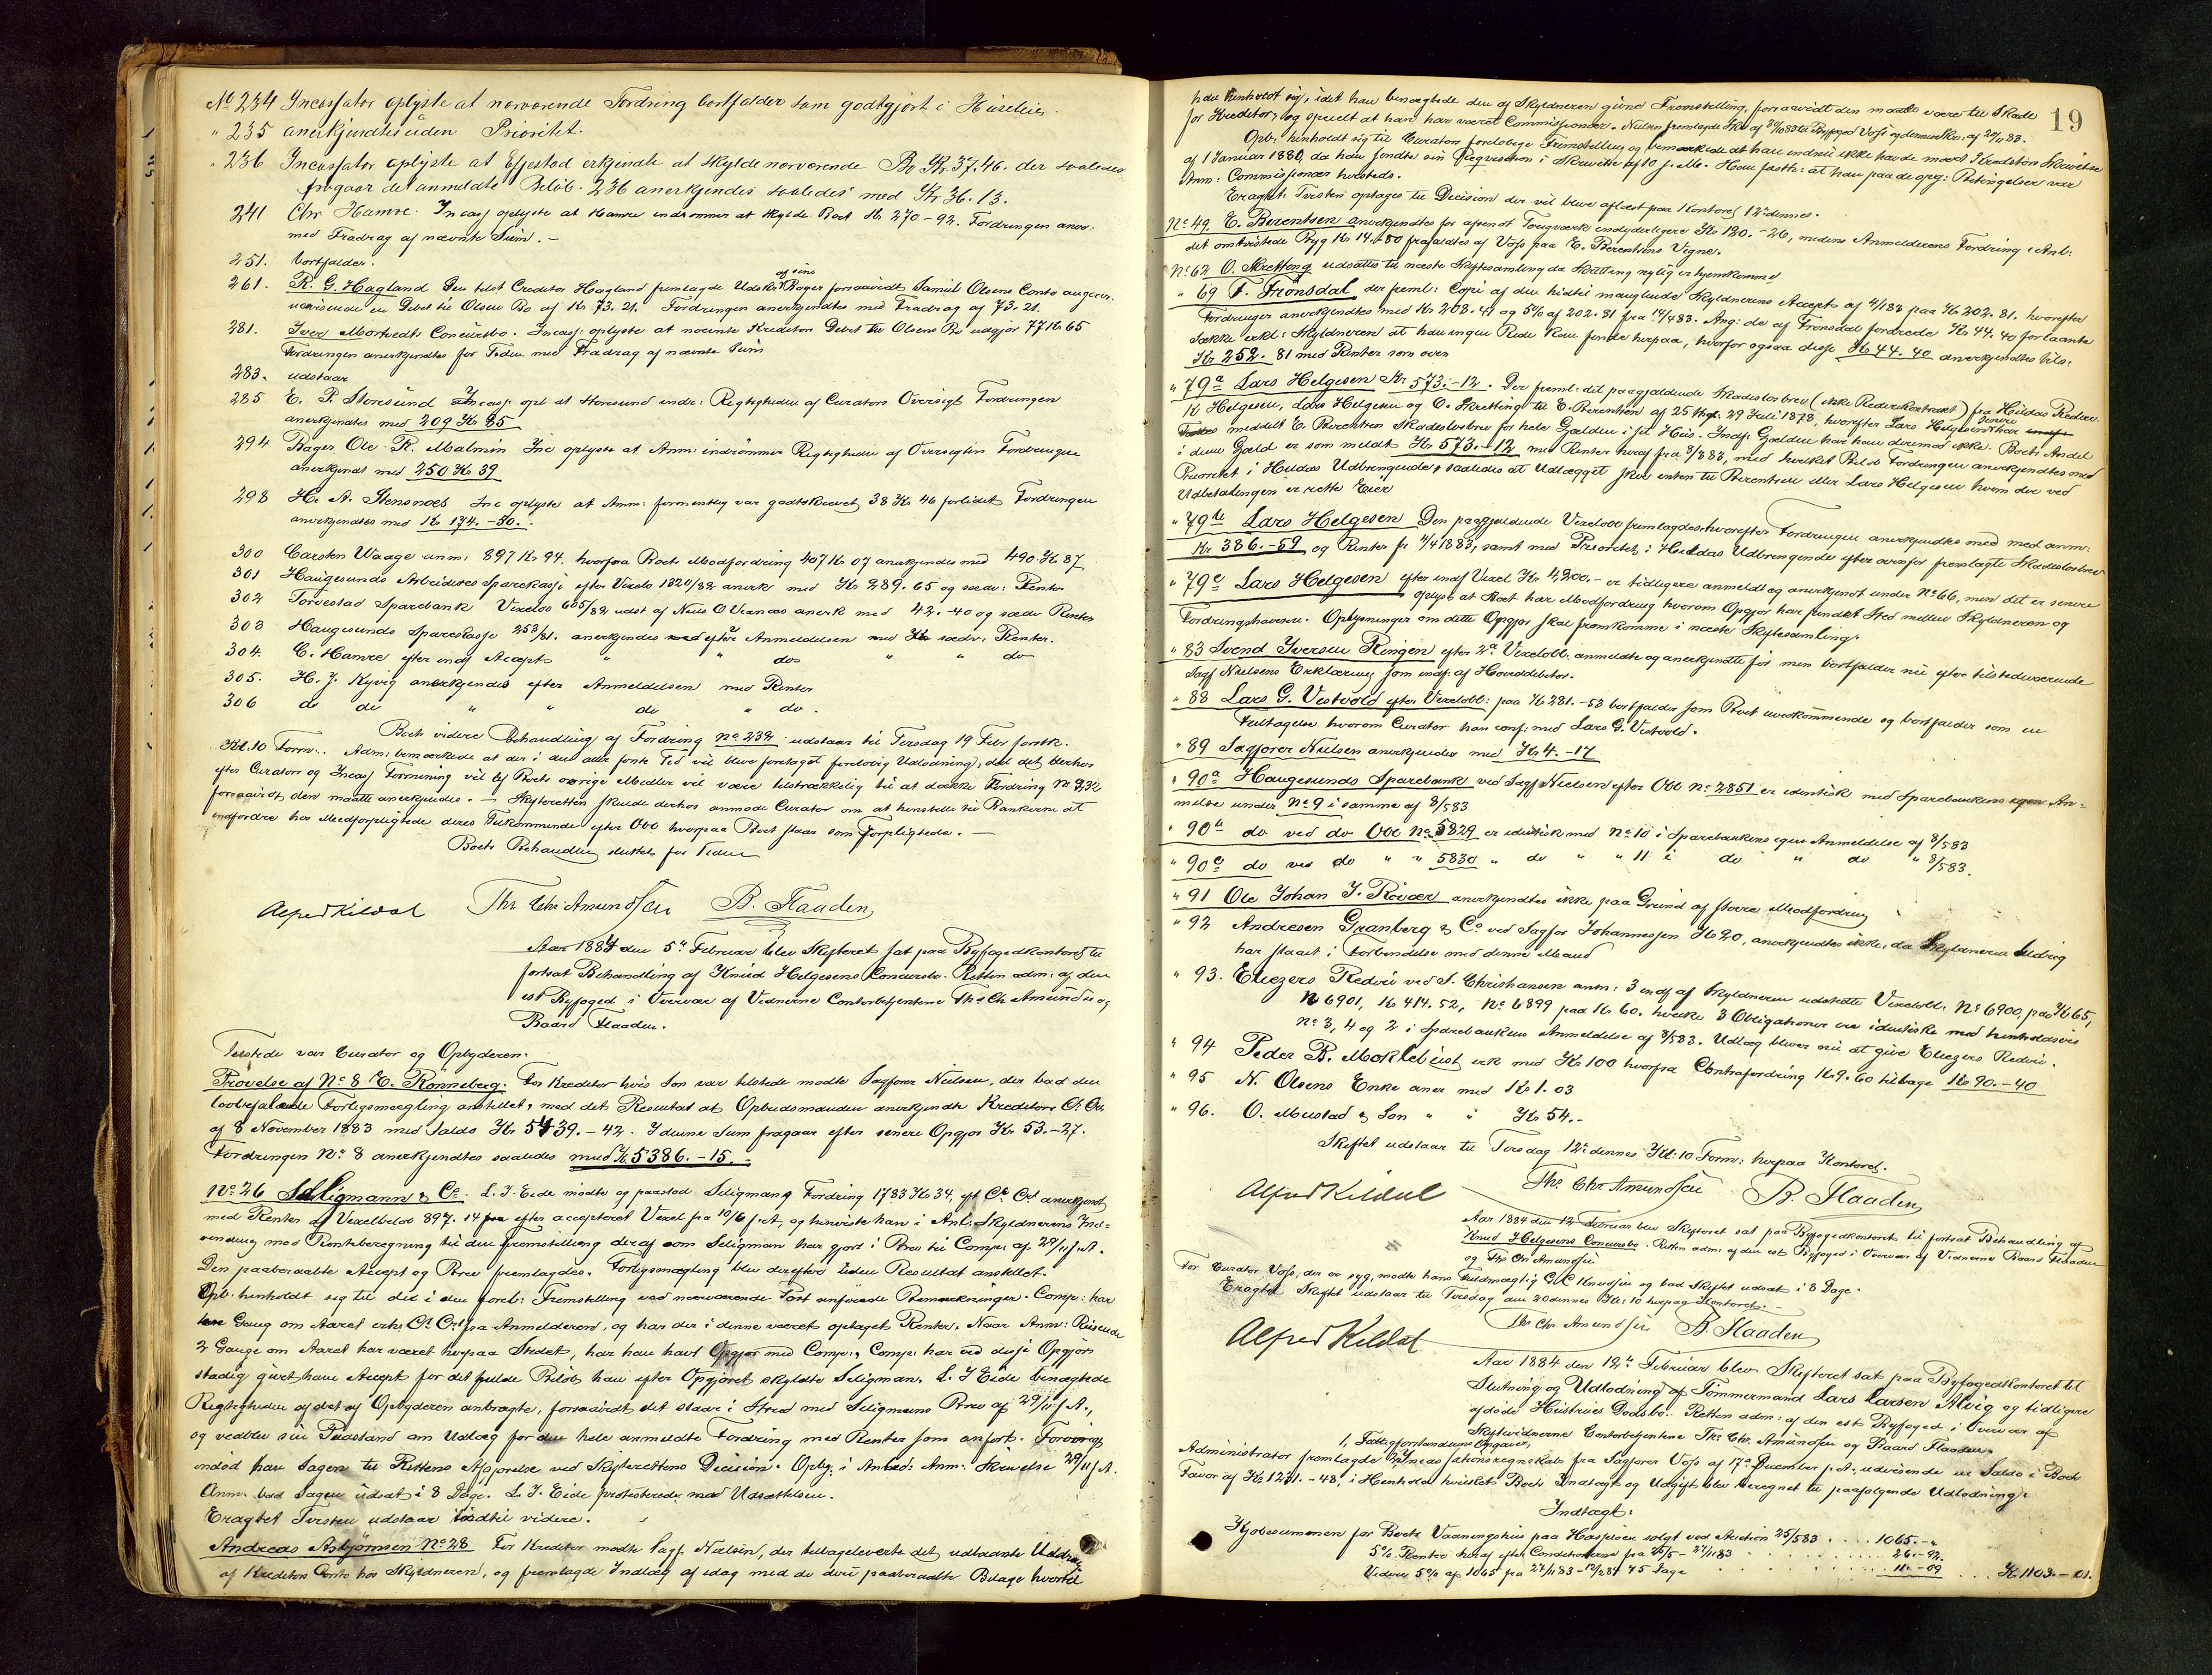 No 234 Incassator oplyste at nærværende Fordring bortfalder som godtgjort i Huseleie.
" 235 anerkjendtes uden Prioritet.
" 236 Incassator oplyste at Efjestad erkjendte at skylde nærværende Bo Kr. 37.46. der saaledes
fragaar det anmeldte Beløb. 236 anerkjendes saaledes med Kr 36.13.
241 Chr Hamre. Incass oplyste at Hamre indrømmer at skylde Boet Kr 270-92. Fordringen aner:
med Fradrag af nævnte Sum. -
251. bortfalder.
261. R. G. Hagland Den tilst Creditor Hagland fremlagde Udskr af sine Bøger forsaavidt Samuel Olsens Conto angaar.
udvisende en Debet til Olsens Bo af Kr 73.21. Fordringen anerkjendtes med Fradrag af 73.21.
281. Iver Mortvedts Concursbo. Incass: oplyste at nævnte Kreditors Debet til Olsens Bo udgjør 77 Kr 65
Fordringen anerkjendtes for Tiden med Fradrag af nævnte Sum
283. udstaar
285 E. P. Storesund Incass: opl at Storesund indr: Rigtigheden af Curators Oversigt Fordringen
anerkjendtes med 209 Kr 85
294 Bager Ole R. Malmin Inc oplyste at Anm: indrømmer Rigtigheden af Oversigten Fordringen
anerkjendt med 250 Kr 39
298 H. A. Stensnæs Inc oplyste at Anm: formentlig var godtskrevet 38 Kr 46 forlidet Fordringen
anerkjendtes med Kr 174.-50.-
300 Carsten Waage anm: 897 Kr 94. hvorfra Boets Modfordring 407 Kr 07 anerkjendes med 490 Kr 87
301 Haugesunds Arbeideres Sparekasse efter Vexelo 1320/82 anerk med Kr 289.65 og sædv: Renter
302 Torvestad Sparebank Vexelob 605/82 udst af Niels O Vernæs anerk med 42.-40 og sædv Renter
303 Haugesunds Sparekasse 258/81. anerkjendes efter Anmeldelsen med sædv: Renter.
304. C. Hamre efter indf Accept " " do " " do
305. H. J. Kyvig anerkjendes efter Anmeldelsen med Renter
306 do do " " do " do.
Boets videre Behandling af Fordring no 232 udstaar til Tirsdag 19 Febr forstk.
Kl. 10 Form:. Adm: bemærkede at der i den aller første Tid vil blive foretaget foreløbig Udlodning, idet det beroer
efter Curators og Incass Formening vil af Boets øvrige Midler vil være tilstrækkelig til at dække Fordring No 232
forsaavidt den maatte anerkjendes. - Skifteretten skulde derhos anmode Curator om at henstille til Bankerne at
indfordre hos Medforpligtede deres Tilkommende efter Obl hvorpaa Boet staar som Forpligtede. -
Boets Behandling sluttet for Tiden
Alfred Kildal Ths Chr Amundssen B. Flaaden
Aar 1884 den 5te Februar blev Skifteret sat paa Byfogedkontoret til
fortsat Behandling af Knud Helgesens Concursbo. Retten adm: af den
est Byfoged i Overvær af Vidnerne Contorbetjentene Ths Chr Amundsen og
Baard Flaaden.
Tilstede var Curator og Opbyderen.
Prøvelse af No 8 E. Rønneberg. For Kreditor hvis Søn var tilstede mødte Sagfører Nielsen, der bad den
lovbefalede Forligsmægling anstillet, med det Resultat at Opbudsmanden anerkjendte Kreditors Ct. Ort.
af 8 November 1883 med Saldo Kr 5439.-42. I denne Sum fragaar efter senere Opgjør Kr 53.-27.
Fordringen No 8 anerkjendtes saaledes med Kr 5386.-15.-
No 26 Seligmann & Co. L. J. Eide mødte og paastod Seligmans Fordring 1783 Kr 34, eft Ct Ort anerkjendt
med Renter af Vexelbeløb 897.14 efter accepteret Vexel fra 10/6 f. A, og henviste han i Anl: Skyldnerens Ind=
vending mod Renteberegning til den Fremstilling deraf som Seligman har gjort i Brev til Comp: af 29/11 f. A.
Den paaberaabte Accept og Brev fremlagdes. Forligsmægling blev derefter uden Resultat anstillet.
Opb. henholdt sig til det i den forel: Fremstilling ved nærværende Post anførte Bemærkninger. Comp: har
Gang om Aaret erh. Ct Ort fra Anmelderen, og har der i denne været optaget Renter. Naar Anm: Reisende
2 Gange om Aaret har været herpaa Stedet, har han havt Opgjør med Comp:, Comp: har ved disse Opgjør
stadig givet ham Accept for det fulde Beløb han efter Opgjøret skyldte Seligman. L. J Eide benægtede
Rigtigheden af det af Opbyderen anbragte, forsaavidt det staar i Strid med Seligmans Brev af 29/11 f. A.,
og vedblev sin Paastand om Udlæg for den hele anmeldte Fordring med Renter som anført. Forøvrigt
indlod han Sagen til Rettens Afgjørelse ved Skifterettens Decision. Opby: i Anled: Anm: Skrivelse 29/11 f. A.
Anm: bad Sagen udsat i 8 Dage. L. J. Eide protesterede mod Udsættelsen.
Eragtet Tvisten udstaar indtil videre.
Andreas Asbjørnsen No 28 For Kreditor mødte Sagf. Nielsen, der tilbageleverte det udlaante Uddrag
af Kreditors Conto hos Skyldneren, og fremlagde Indlæg af idag med de deri paaberaabte Bilage hvortil
19
han henholdt sig, idet han benægtede den af Skyldneren givne Fremstilling, forsaavidt den maatte være til Skade
for Kreditor, og specielt at han har været Commissionær. Nielsen fremlagde Skr af 30/10 83 til Byfoged Voss og dennes Skr. af 20/11 83.
Opb: henholdt sig til Curators foreløbige Fremstilling og bemærkede at han endnu ikke havde mod Kreditors Skrivelse
af 1 Januar 1880, da han sendte sin Reqvisition i Skrivelse af 10 f. M. Han fasth: at han paa de opg: Betingelser var
Anm: Commissionær hersteds.
Eragtet: Tvisten optages til Decision der vil blive aflæst paa Kontoret 12te dennes.
No 49. E. Berentsen anerkjendtes for Kr 120.-26, medens Anmelderens Fordring i Anl:
det omtvistede Byg Kr 14.80 frafaldtes af Voss paa E. Berentsens Vegne.
No 62 O. Skretting udsattes til næste Skiftesamling da Skretting nylig er hjemkommet
" 69 F. Frønsdal der freml: Copi af den hidtil manglende Skyldnerens Accept af 4/1 83 paa Kr 202.81. hvorefter
Fordringen anerkjendtes med Kr 208.41 og 5% af 202.81 fra 14/4 83. Ang: de af Frønsdal fordrede Kr 44.40 for laante
Sække erkl: Skyldneren at han ingen Rede kan finde herpaa, hvorfor ogsaa disse Kr 44.40 anerkjendtes tils.
Kr 252.81 med Renter som oven
" 79a Lars Helgesen Kr 573.-12. Der freml: det paagjældende Skadesløsbrev (ikke Rederikontrakt) fra Hildas Redere
K Helgesen, Lars Helgesen og O. Skretting til E. Berentsen af 25 29 Juli 1878, hvorefter Lars Helgesen senere har
meddelt E. Berentsen Skadesløsbrev for hele Gjælden i sit Hus. Indfr Gjælden har han derimod ikke. Boets Andel
i denne Gjæld er som meldt Kr 573.-12 med Renter heraf fra 8/8 83, med hvilket Beløb Fordringen anerkjendtes med
Prioritet i Hildas Udbringende, saaledes at Udlægget sker enten til Berentsen eller Lars Helgesen hvem der ved
Udbetalingen er rette Eier
" 79b Lars Helgesen Den paagjældende Vexelobl fremlagdes, hvorefter Fordringen anerkjendtes med med anm:
Kr 386.-59 og Renter fr 11/4 1883, samt med Prioritet i Hildas Udbringende efter ovenfor fremlagte Skadesløsbrev
" 79c Lars Helgesen efter indf Vexel Kr 4,200.- er tidligere anmeldt og anerkjendt under No 66, men det er senere
oplyst at Boet har Modfordring hvorom Opgjør har fundet Sted mellem Skyldneren og
Fordringshaveren. Oplysninger om dette Opgjør skal fremkomme i næste Skiftesamling.
" 83 Svend Iversen Ringen efter 2de Vexelobl. anmeldte og anerkjendte før men bortfalder nu efter tilstedeværende
Sagf Nielsens Erklæring som indfr: af Hoveddebitor.
" 88 Lars G. Vestvold efter Vexelobl: paa Kr 281.-53 bortfalder som Boet uvedkommende og bortfalder som en
Feiltagelse hvorom Curator har conf: med Lars G. Vestvold.
" 89 Sagfører Nielsen anerkjendes med Kr 4.-17
" 90a Haugesunds Sparebank ved Sagf Nielsen efter Obl no 2851 er identisk med Sparebankens egen An=
meldse under No 9 i samme af 8/5 83
" 90b do ved do Obl No 5829 er identisk med No 10 i Sparebankens egen Anmeldelse af 8/5 83
" 90c do ved do " " 5830 " do " " 11 i do " do " 8/5 83.
" 91 Ole Johan J. Røvær anerkjendtes ikke paa Grund af større Modfordring
" 92 Andresen Granberg & Co ved Sagfør Johannessen Kr 20, anerkjendtes ikke, da Skyldneren aldrig
har staaet i Forbindelse med denne Mand
" 93. Eliezers Rederi ved S. Christiansen anm: 3 indf af Skyldneren udstedte Vexelobl. No 6900, paa Kr 65,
No 6901, Kr 414.52, No 6899 paa Kr 60. hvilke 3 Obligationer ere identiske med henholdsvis
No 3, 4 og 2 i Sparebankens Anmeldelse af 8/5 83. Udlæg bliver nu at give Eliezers Rederi.
" 94 Peder B. Moklebust erk med Kr 100 hvorfra Contrafordring Kr 9.60 tilbage Kr 90.-40
" 95 N. Olsens Enke aner med Kr 1.03
" 96. O. Mustad & Søn " " Kr 54.-
Skiftet udstaar til Tirsdag 12te dennes Kl: 10 Form: herpaa Kontoret.
Alfred Kildal Ths. Chr Amundssen B. Flaaden
Aar 1884 den 12 Februar blev Skifteret sat paa Byfogedkontoret til fortsat Behandling af
Knud Helgesens Concursbo. Retten adm: af den est Byfoged i Overvær af Vidnerne Baard Flaaden
og Ths Chr Amundsen
For Curator Voss, der er syg, mødte hans Fuldmægtig C. C. Knudsen og bad Skiftet udsat i 8 Dage.
Eragtet Skiftet udstaar til Tirsdag den 20 dennes Kl: 10 herpaa Kontoret. -
Alfred Kildal Ths Chr Amundssen B. Flaaden
Aar 1884 den 12te Februar blev Skifteret sat paa Byfogedkontoret til
Slutning og Udlodning af Tømmermand Lars Larsen Alvig og tidligere
afdøde Hustrues Dødsbo. Retten adm: af den est Byfoged i Overvær af
Skiftevidnerne Contorbetjentene Ths. Chr. Amundssen og Baard Flaaden.
1, Fattigforstanderens Opgaver,
Administrator fremlagde 2, Incassationsregnskab fra Sagfører Voss af 17de December f. A. udvisende en Saldo i Boets
Favør af Kr 1231.-48, i Henhold hvortil Boets Indtægt og Udgift blev beregnet til paafølgende Udlodning:
Indtægt:
Kjøbesummen for Boets Vaaningshus paa Hasseløen solgt ved Auction 25/5 83 .... 1065.-"
5% Renter heraf efter Conditionerne fra 25/5 - 24/11 83 ........ 26.-92.
Videre 5% af 1065 fra 24/11 83 - 12/2 84 75 Dage ........ 11.-09 .... Kr. 1103.-01.